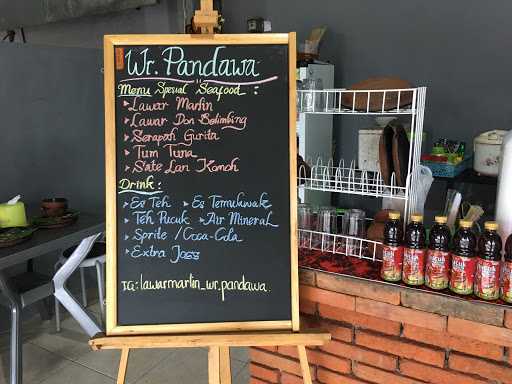 Wr. Pandawa
Menu Spesial Seafood :
➤ Lawar Marlin
➤ Lawar Don Belimbing
➤ Serapah Gurita
➤ Tum Tuna
➤ Sate Lan Komoh
Drink :
➤ Es Teh ➤ Es Temulawak
➤ Teh Pucuk ➤ Air Mineral
➤ Sprite / Coca-Cola
➤ Extra Joss
IG : lawarmarlin_wr.pandawa